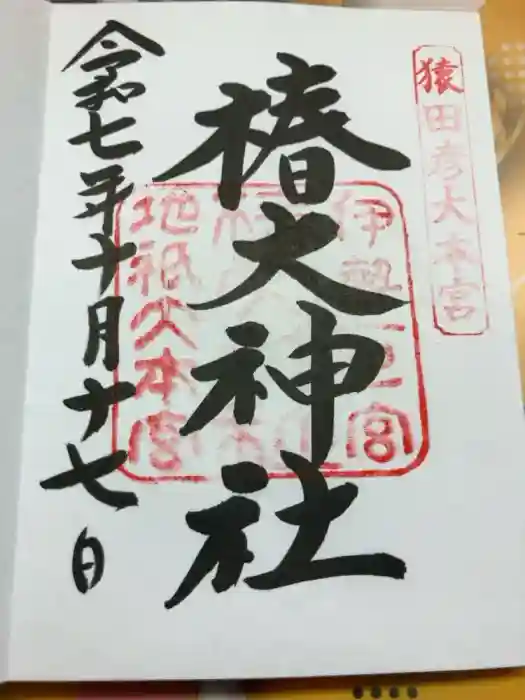 猿田彦大本宮
椿大神社
伊勢一之宮
地祇大本宮
令和七年十月十七日